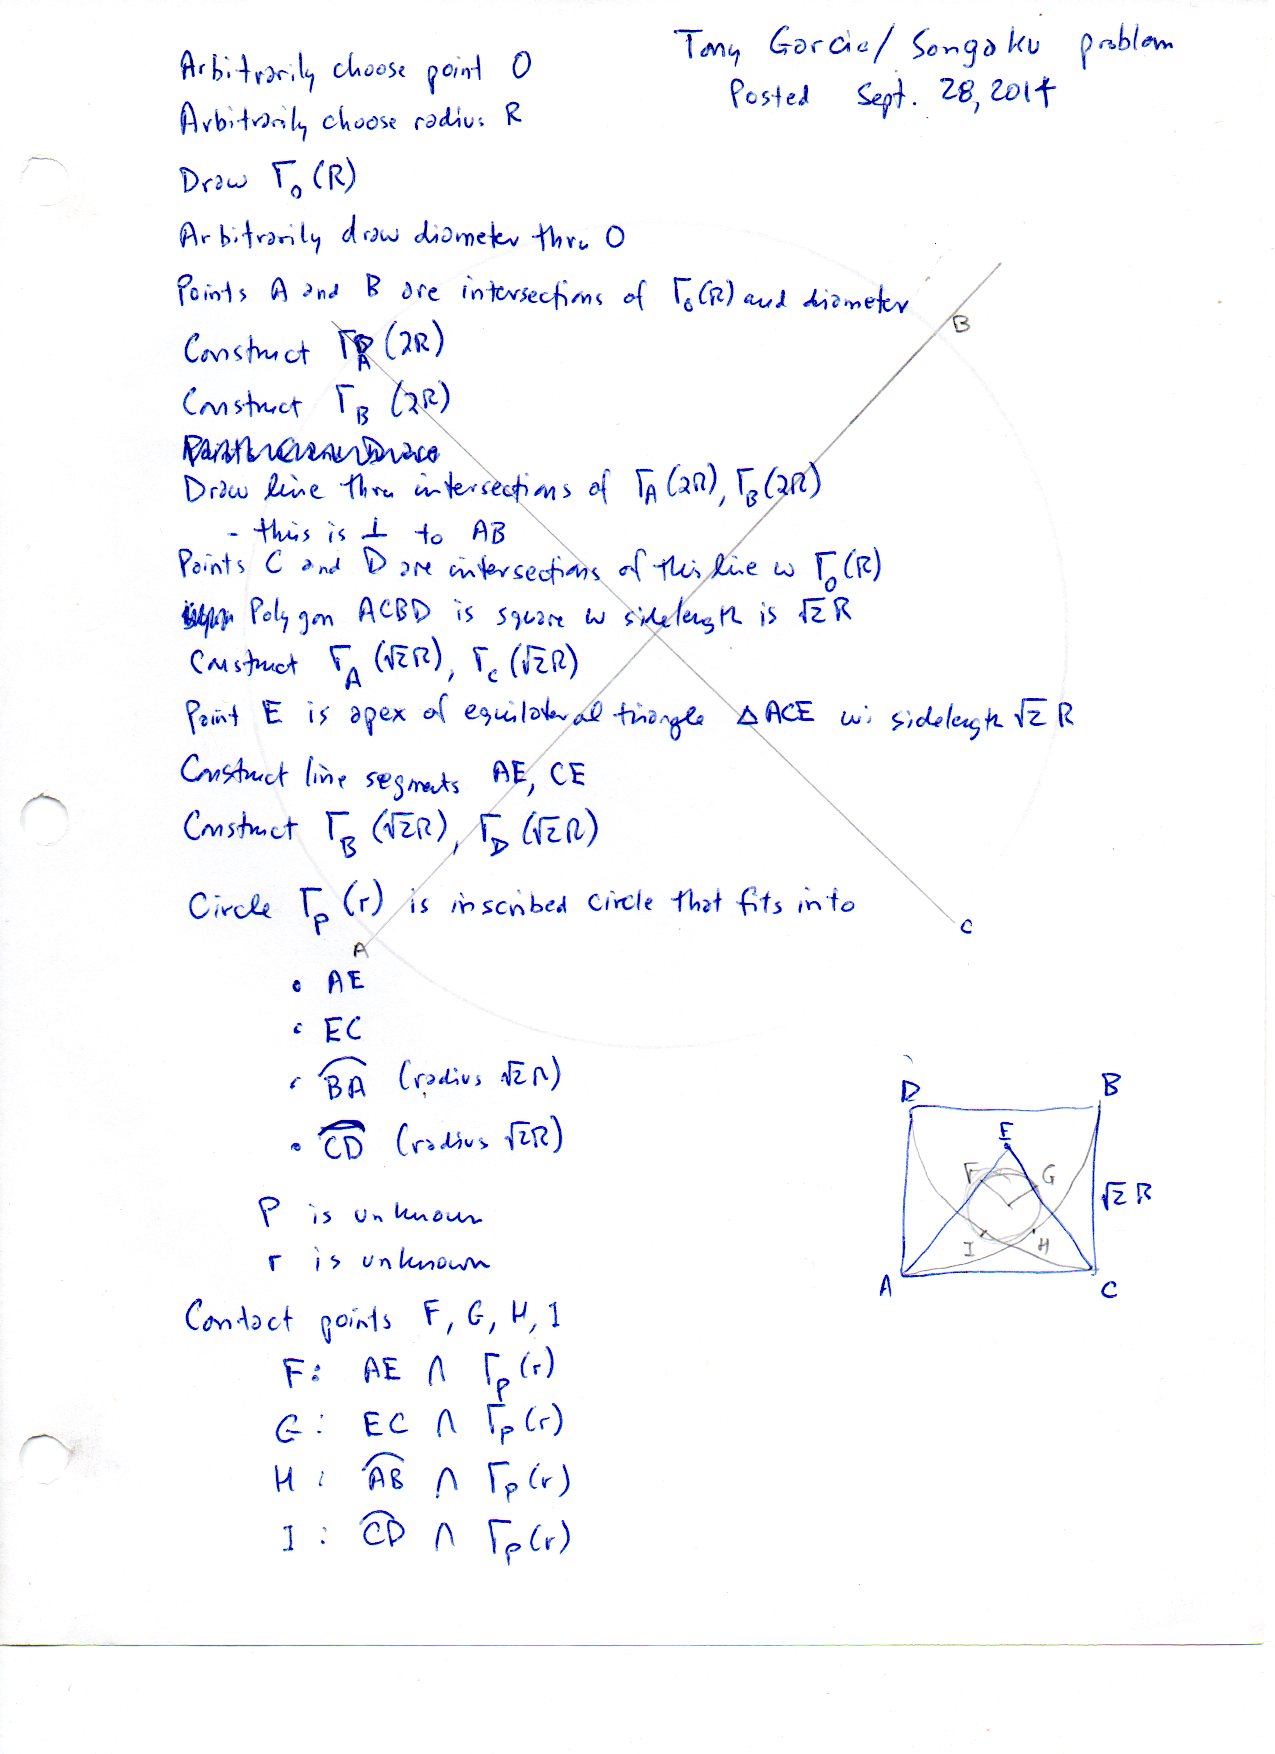 Tony Garcia/ Sangaku problem
Posted Sept. 28, 2014
Arbitrarily choose point O
Arbitrarily choose radius R
Draw Γ₀(R)
Arbitrarily draw diameter thru O
Points A and B are intersections of Γ₀(R) and diameter
B
Construct Γ_A (2R)
Construct Γ_B (2R)
Draw line thru intersections of Γ_A(2R), Γ_B(2R)
- this is ⊥ to AB
Points C and D are intersections of this line w Γ₀(R)
Polygon ACBD is square w sidelength is √2 R
Construct Γ_A (√2R), Γ_C (√2R)
Point E is apex of equilateral triangle △ACE w: sidelength √2 R
Construct line segments AE, CE
Construct Γ_B (√2R), Γ_D (√2R)
Circle Γ_P (r) is inscribed circle that fits into
C
A
• AE
• EC
• B͡A (radius √2R)
• C͡D (radius √2R)
P is unknown
r is unknown
D B
E
F G
√2 R
I H
A C
Contact points F, G, H, I
F: AE ∩ Γ_P(r)
G: EC ∩ Γ_P(r)
H: A͡B ∩ Γ_P(r)
I: C͡D ∩ Γ_P(r)